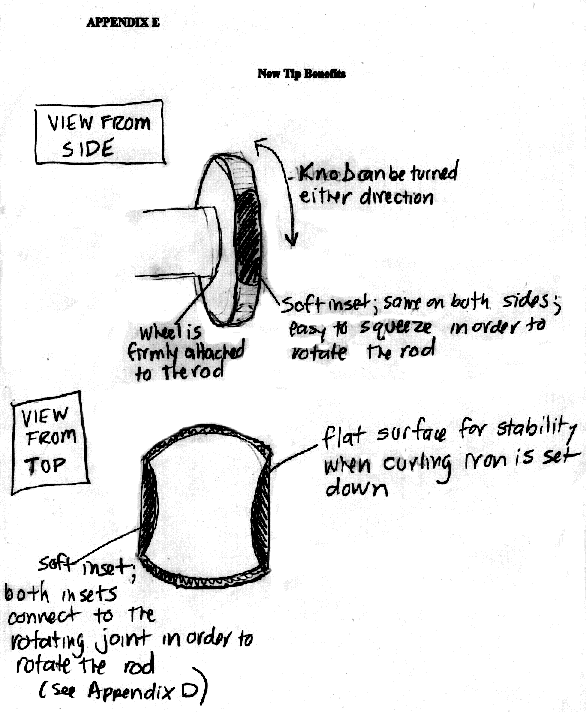 APPENDIX E
New Tip Benefits
VIEW FROM
SIDE
Knob can be turned
either direction
Soft inset; same on both sides;
easy to squeeze in order to
rotate the rod
wheel is
firmly attached
to the rod
VIEW
FROM
TOP
flat surface for stability
when curling iron is set
down
soft inset;
both insets
connect to the
rotating joint in order to
rotate the rod
(see Appendix D)